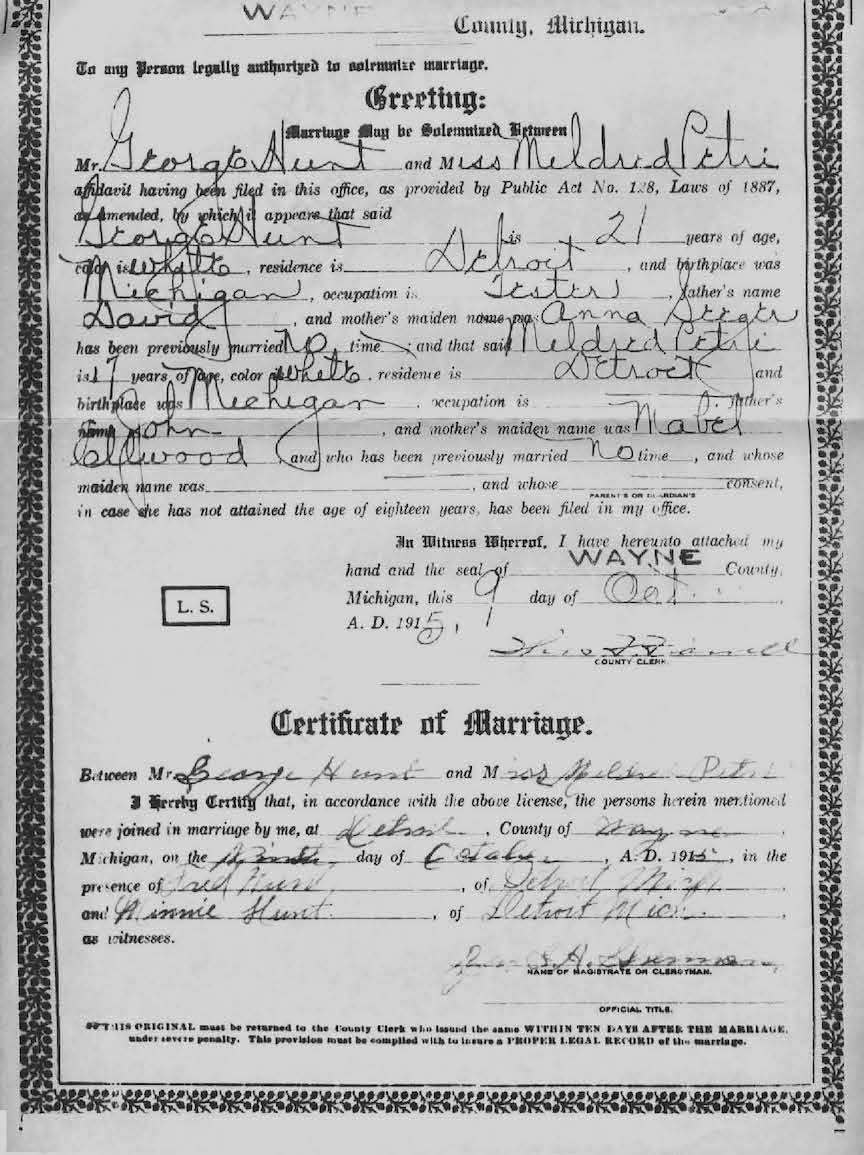 WAYNE County, Michigan.
To any Person legally authorized to solemnize marriage.
Greeting:
Marriage May be Solemnized Between
Mr. George Hunt and Miss Mildred Petri
affidavit having been filed in this office, as provided by Public Act No. 128, Laws of 1887,
as amended, by which it appears that said
George Hunt is 21 years of age,
color is white, residence is Detroit, and birthplace was
Michigan, occupation is Tester, father's name
David, and mother's maiden name was Anna Seeger
has been previously married no time, and that said Mildred Petri
is 17 years of age, color is white, residence is Detroit and
birthplace was Michigan, occupation is father's
name John, and mother's maiden name was Mabel
Ellwood, and who has been previously married No time, and whose
maiden name was, and whose consent,
PARENT'S OR GUARDIAN'S
in case she has not attained the age of eighteen years, has been filed in my office.
In Witness Whereof, I have hereunto attached my
hand and the seal of WAYNE County,
Michigan, this 9 day of Oct.
L. S.
A. D. 1915,
COUNTY CLERK.
Certificate of Marriage.
Between Mr. George Hunt and Miss Mildred Petri
I Hereby Certify that, in accordance with the above license, the persons herein mentioned
were joined in marriage by me, at Detroit, County of Wayne
Michigan, on the Ninth day of October, A. D. 1915, in the
presence of Fred, of Detroit Mich
and Minnie Hunt, of Detroit Mich.
as witnesses.
NAME OF MAGISTRATE OR CLERGYMAN.
OFFICIAL TITLE.
THIS ORIGINAL must be returned to the County Clerk who issued the same WITHIN TEN DAYS AFTER THE MARRIAGE,
under severe penalty. This provision must be complied with to insure a PROPER LEGAL RECORD of the marriage.